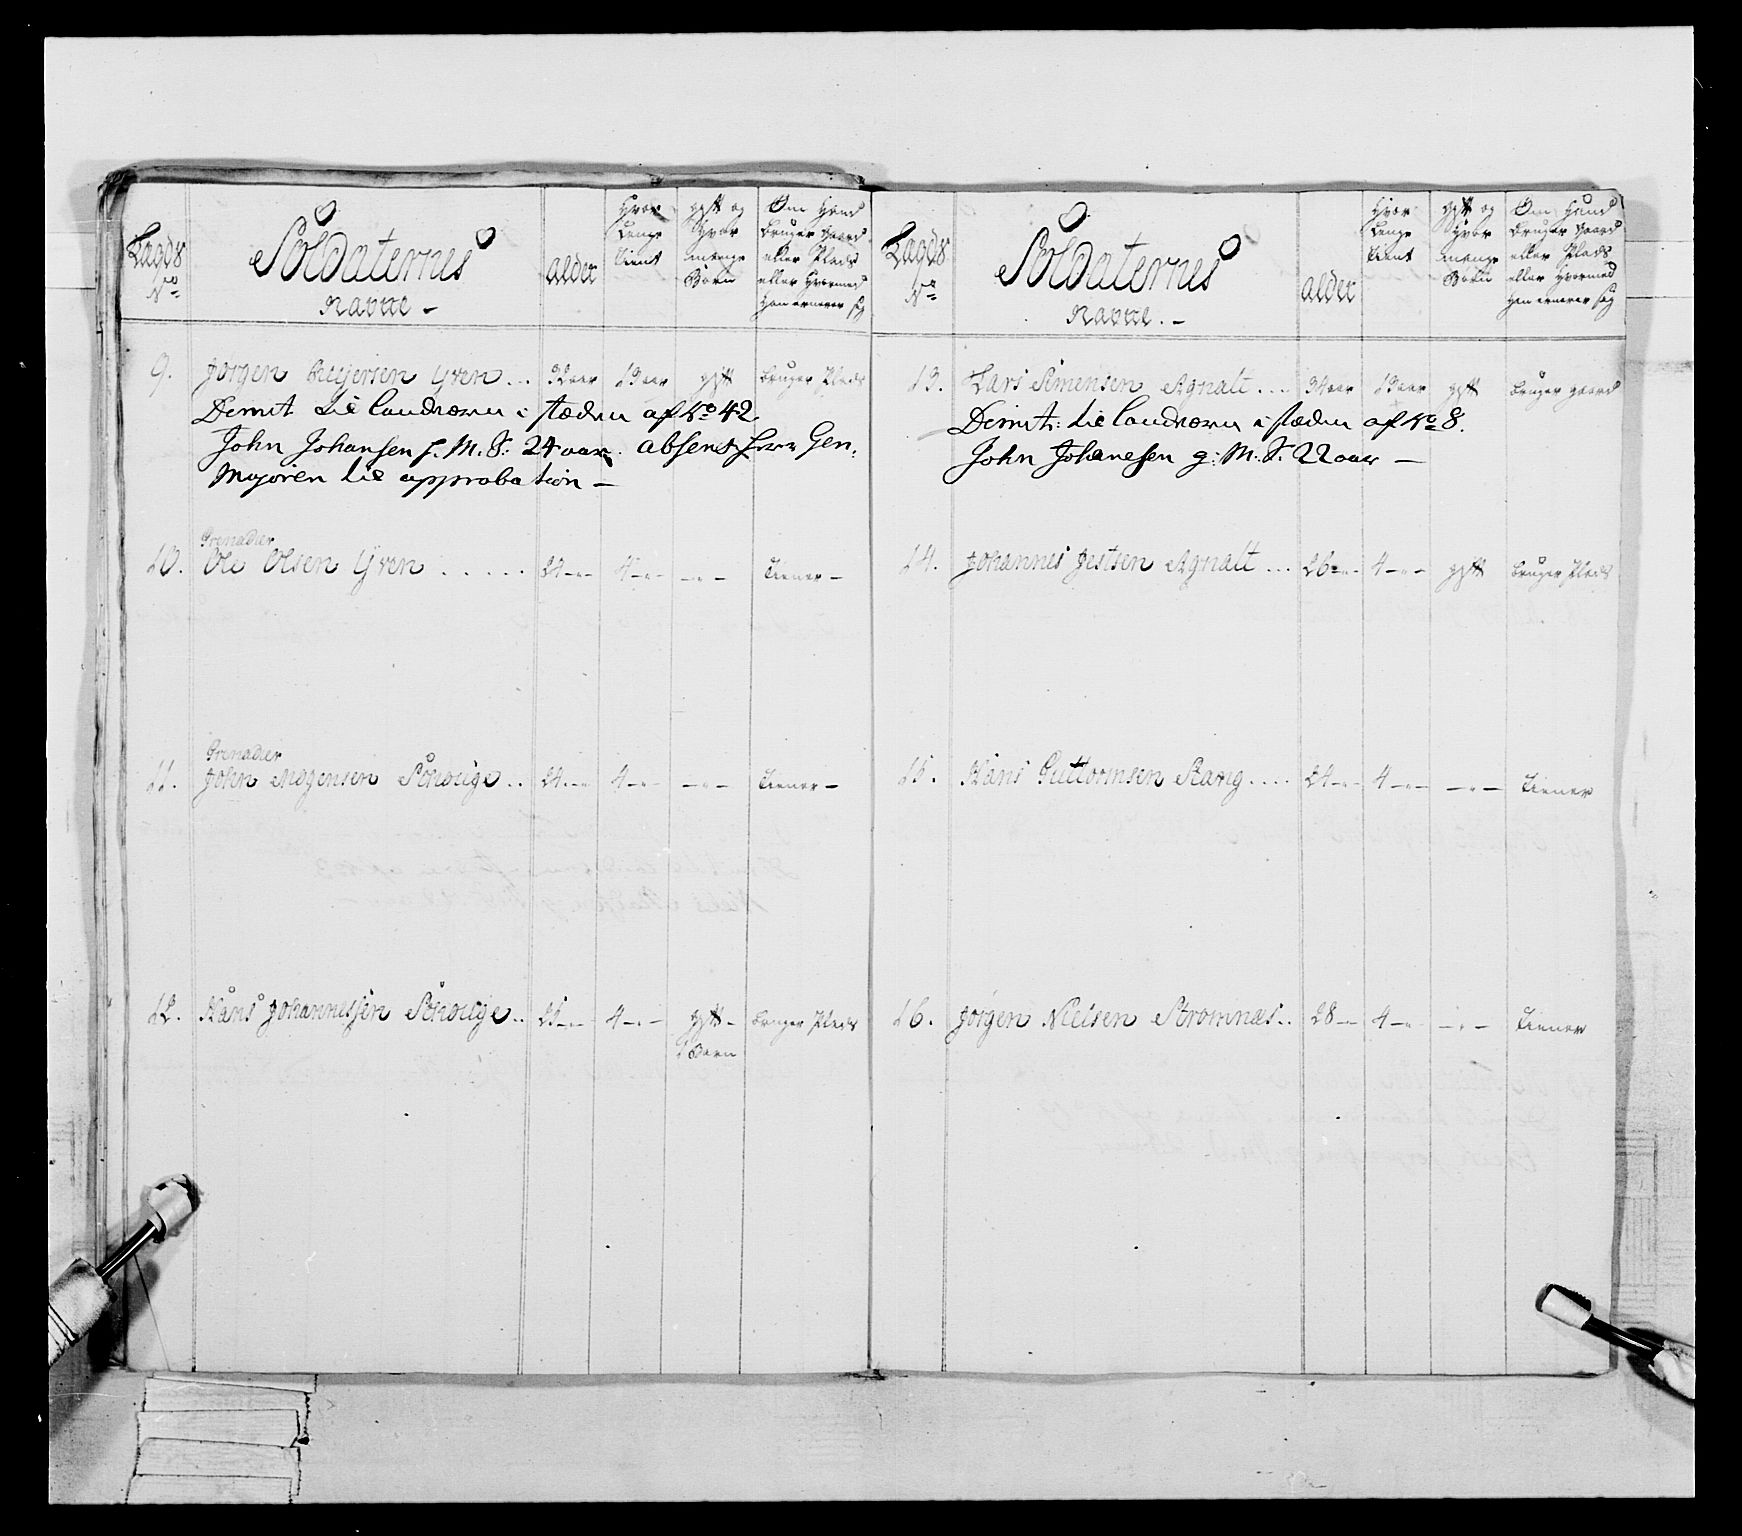 Lægds No
Soldaternes
Navne -
alder
Hvor
Lenge
tient
gift og
Hvor
mange
Børn
Om Hand
bruger gaard
eller Plads
eller Hvormed
Han ernerer sig
9. Jørgen Reijersen Gren .. 32 aar 13 aar gift bruger Plads
Demit til landværn i stæden af No 42
John Johansen f. M. S: 24 aar. absent Herr Gen:
Majoren til approbation -
Grenadier
10. Ole Olsen Gren . . . . . 24 -"- 4 -"- -"- Tiener -
Grenadier
11. John Mogensen Schouge .. 24 -"- 4 -"- -"- Tiener -
12. Hans Johannessen Schouge .. 25 -"- 4 -"- gift - bruger Plads
1 Barn
Lægds No
Soldaternes
Navne. -
alder
Hvor
Lenge
tient
gift og
Hvor
mange
Børn
Om Hand
bruger gaard
eller Plads
eller Hvormed
Han ernerer sig
13. Lars Simensen Agnalt .... 34 aar 13 aar gift bruger gaard
Demit: til landværn i stæden af No 8.
John Johanesen g: M. S. 22 aar -
14. Johannes Jestsen Agnalt ... 26 -"- 4 -"- gift bruger Plads
15. Hans Guttormsen Stang .... 24 -"- 4 -"- -"- Tiener
16. Jørgen Nielsen Stromnæs .. 28 -"- 4 -"- -"- Tiener